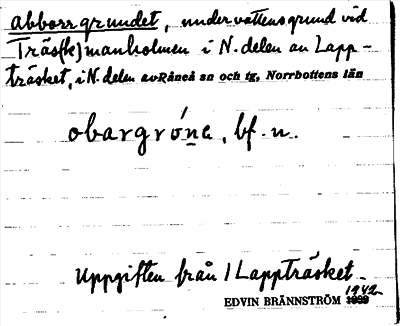 abborrgrundet, undervattensgrund vid
Träs(k)manholmen i N. delen av Lapp-
träsket, i N. delen av Råneå sn och tg, Norrbottens län
obargróna, bf. n.
Uppgiften från 1 Lappträsket.
1942
EDVIN BRÄNNSTRÖM 1939